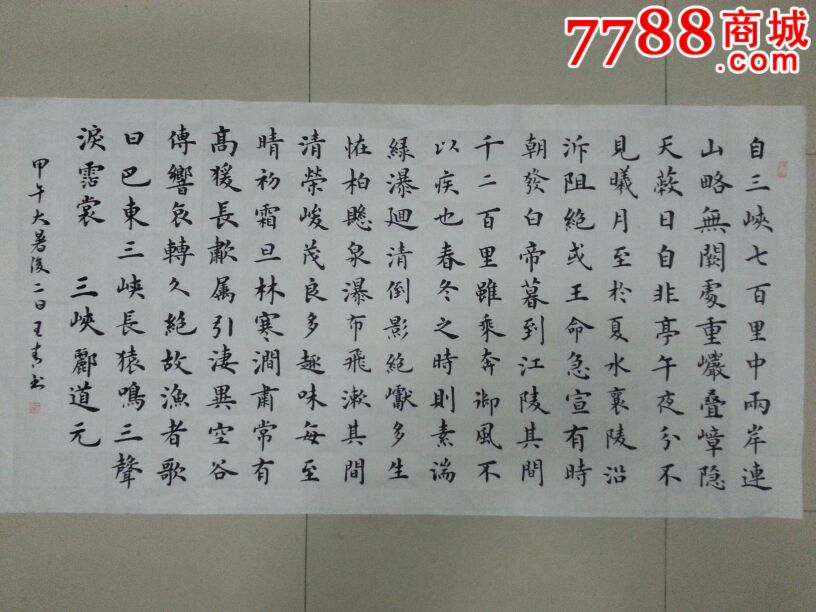 7788商城
.com
自三峽七百里中兩岸連
山略無闕處重巘疊嶂隐
天蔽日自非亭午夜分不
見曦月至於夏水襄陵沿
泝阻絶或王命急宣有時
朝發白帝暮到江陵其間
千二百里雖乘奔御風不
以疾也春冬之時則素湍
緑瀑廻清倒影絶巘多生
恠柏懸泉瀑布飛漱其間
清榮峻茂良多趣味每至
晴初霜旦林寒澗肅常有
高猨長歗属引淒異空谷
傳響哀轉久絶故漁者歌
曰巴東三峽長猿鳴三聲
淚霑裳 三峽酈道元
甲午大暑後二日王書